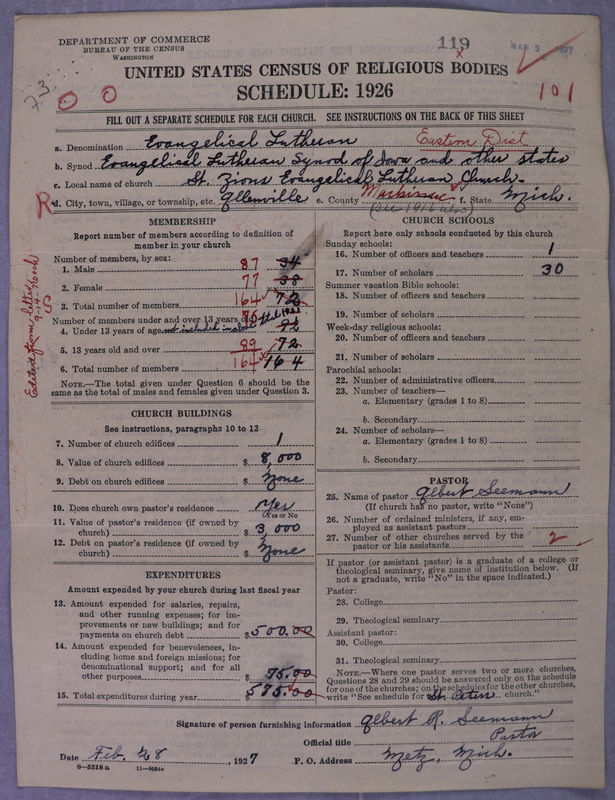 DEPARTMENT OF COMMERCE
BUREAU OF THE CENSUS
WASHINGTON
119
MAR 3 1927
73
00
101
UNITED STATES CENSUS OF RELIGIOUS BODIES
SCHEDULE: 1926
FILL OUT A SEPARATE SCHEDULE FOR EACH CHURCH. SEE INSTRUCTIONS ON THE BACK OF THIS SHEET
a. Denomination Evangelical Lutheran Eastern Dist
b. Synod Evangelical Lutheran Synod of Iowa and other states
c. Local name of church St. Zions Evangelical Lutheran Church.
R d. City, town, village, or township, etc. Allenville e. County Mackinac f. State Mich.
(See 1916 also)
Edited from letter
MEMBERSHIP
Report number of members according to definition of member in your church
Number of members, by sex:
1. Male 87 34
2. Female 77 38
3. Total number of members 164 72
Number of members under and over 13 years
4. Under 13 years of age not included in above 75 92
5. 13 years old and over 89 72
6. Total number of members 164 164
NOTE.—The total given under Question 6 should be the same as the total of males and females given under Question 3.
CHURCH BUILDINGS
See instructions, paragraphs 10 to 12
7. Number of church edifices 1
8. Value of church edifices $ 8,000
9. Debt on church edifices $ None
10. Does church own pastor's residence Yes
Yes or No
11. Value of pastor's residence (if owned by church) $ 3 000
12. Debt on pastor's residence (if owned by church) $ None
EXPENDITURES
Amount expended by your church during last fiscal year
13. Amount expended for salaries, repairs, and other running expenses; for improvements or new buildings; and for payments on church debt $ 500.00
14. Amount expended for benevolences, including home and foreign missions; for denominational support; and for all other purposes $ 75.00
15. Total expenditures during year $ 575.00
CHURCH SCHOOLS
Report here only schools conducted by this church
Sunday schools:
16. Number of officers and teachers 1
17. Number of scholars 30
Summer vacation Bible schools:
18. Number of officers and teachers
19. Number of scholars
Week-day religious schools:
20. Number of officers and teachers
21. Number of scholars
Parochial schools:
22. Number of administrative officers
23. Number of teachers—
a. Elementary (grades 1 to 8)
b. Secondary
24. Number of scholars—
a. Elementary (grades 1 to 8)
b. Secondary
PASTOR
25. Name of pastor Albert Seemann
(If church has no pastor, write "None")
26. Number of ordained ministers, if any, employed as assistant pastors
27. Number of other churches served by the pastor or his assistants 2
If pastor (or assistant pastor) is a graduate of a college or theological seminary, give name of institution below. (If not a graduate, write "No" in the space indicated.)
Pastor:
28. College
29. Theological seminary
Assistant pastor:
30. College
31. Theological seminary
NOTE.—Where one pastor serves two or more churches, Questions 28 and 29 should be answered only on the schedule for one of the churches; on the schedules for the other churches, write "See schedule for St. Peters church."
Signature of person furnishing information Albert R. Seemann
Official title Pastor
Date Feb. 28, 1927 P. O. Address Metz, Mich.
8—5518a 11—9034a